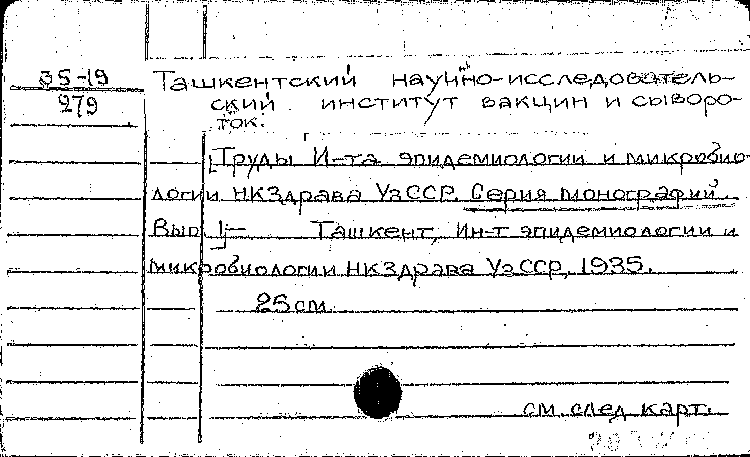 35-19
279
Ташкентский научно-исследователь-
ский институт вакцин и сыворо-
ток.
[Труды И-та эпидемиологии и микробио-
логии НКЗдрава УзССР. Серия монографий.
Вып. 1]- Ташкент, Ин-т эпидемиологии и
микробиологии НКЗдрава УзССР, 1935.
25 см.
см. след. карт.